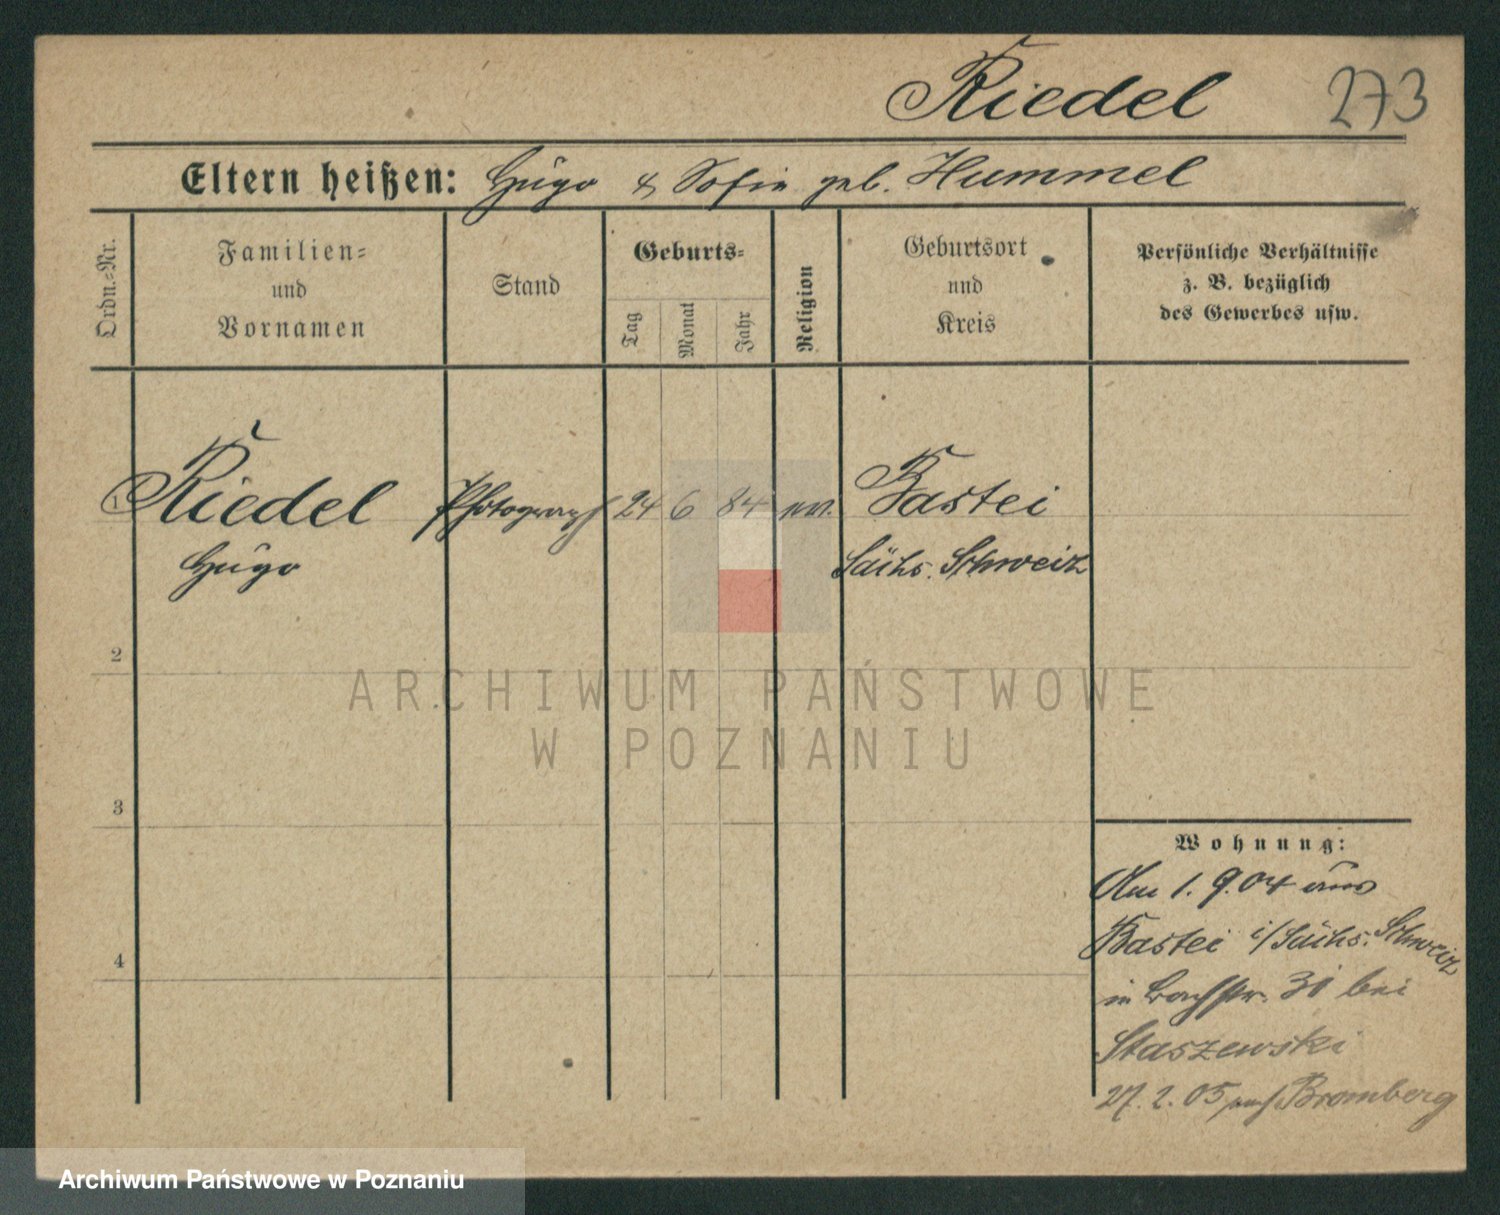 Riedel 273
Eltern heißen: Hugo & Sofie geb. Hummel
Ordn.-Nr.
Familien-
und
Vornamen
Stand
Geburts-
Tag
Monat
Jahr
Religion
Geburtsort
und
Kreis
Persönliche Verhältnisse
z. B. bezüglich
des Gewerbes usw.
1 Riedel Photograph 24 6 84 ev. Bastei
Hugo Sächs. Schweiz
2
3
4
Wohnung:
Am 1. 9. 04 aus
Bastei i/Sächs. Schweiz
in bei
Staszewski
27. 2. 05 nach Bromberg
ARCHIWUM PAŃSTWOWE
W POZNANIU
Archiwum Państwowe w Poznaniu